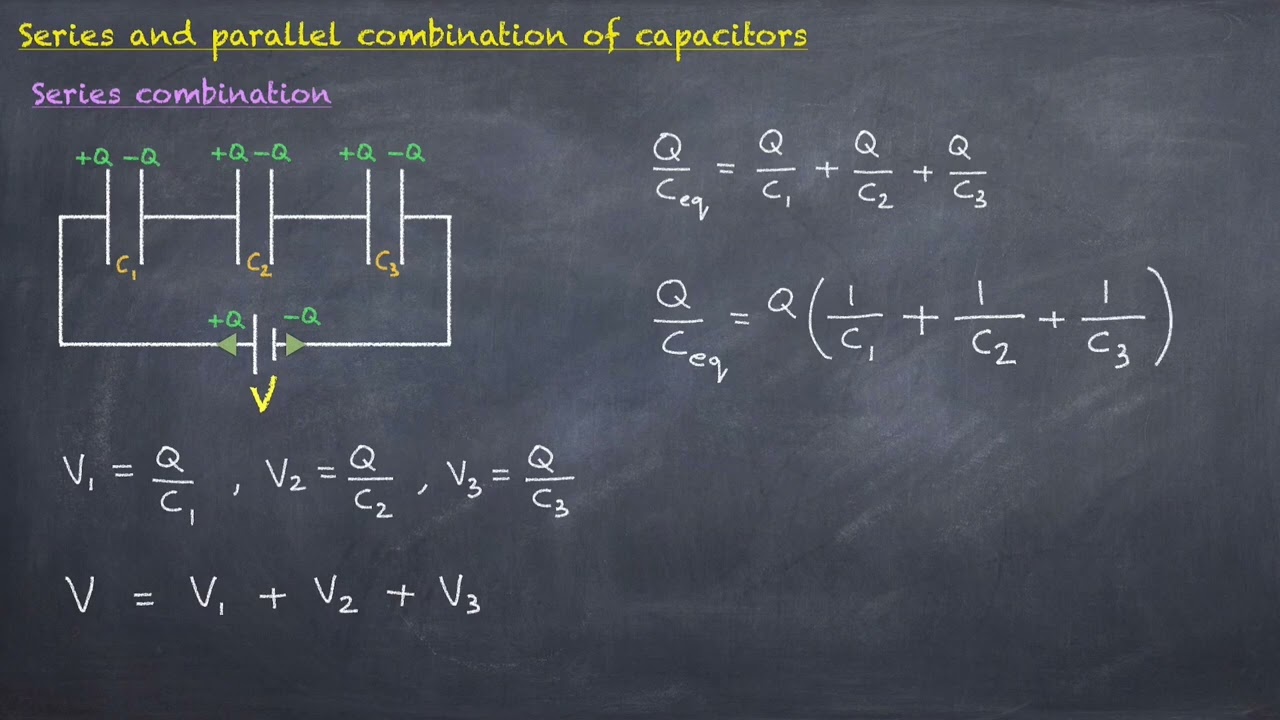 Series and parallel combination of capacitors
Series combination
+Q −Q +Q −Q +Q −Q
C₁ C₂ C₃
+Q −Q
V
V₁ = Q/C₁ , V₂ = Q/C₂ , V₃ = Q/C₃
V = V₁ + V₂ + V₃
Q/Ceq = Q/C₁ + Q/C₂ + Q/C₃
Q/Ceq = Q(1/C₁ + 1/C₂ + 1/C₃)